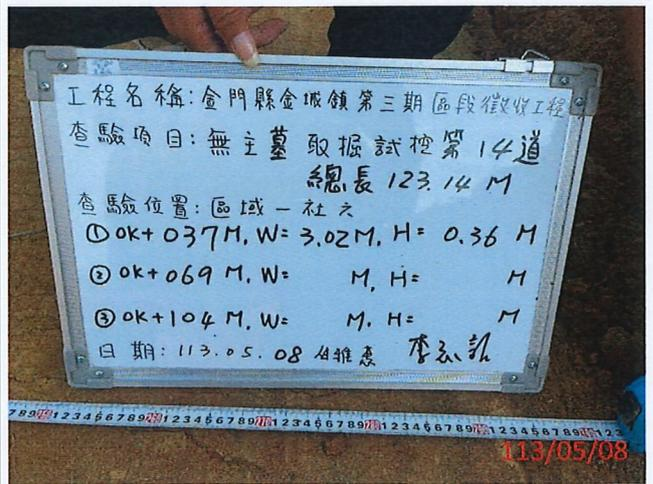 工程名稱:金門縣金城鎮第三期區段徵收工程
查驗項目:無主墓取掘試挖第14道
總長123.14M
查驗位置:區域一社六
①0K+037M,W=3.02M,H=0.36 M
②0K+069M,W= M,H= M
③0K+104M,W= M,H= M
日期:113.05.08
113/05/08